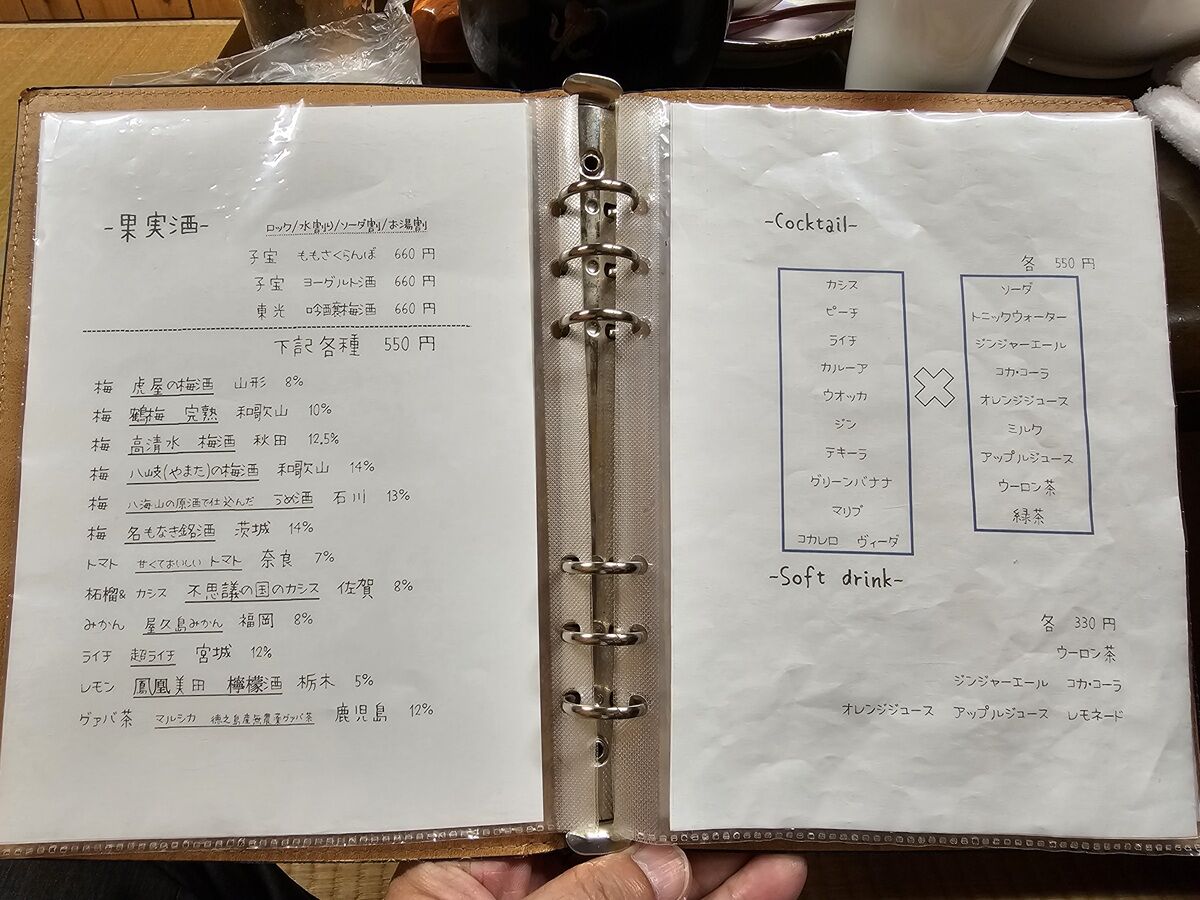 -果実酒-
ロック/水割り/ソーダ割/お湯割
子宝 ももさくらんぼ 660 円
子宝 ヨーグルト酒 660 円
東光 吟醸梅酒 660 円
下記各種 550 円
梅 虎屋の梅酒 山形 8%
梅 鶴梅 完熟 和歌山 10%
梅 高清水 梅酒 秋田 12,5%
梅 八岐(やまた)の梅酒 和歌山 14%
梅 八海山の原酒で仕込んだ うめ酒 石川 13%
梅 名もなき銘酒 茨城 14%
トマト 甘くておいしい トマト 奈良 7%
柘榴& カシス 不思議の国のカシス 佐賀 8%
みかん 屋久島みかん 福岡 8%
ライチ 超ライチ 宮城 12%
レモン 鳳凰美田 檸檬酒 栃木 5%
グァバ茶 マルシカ 徳之島産無農薬グァバ茶 鹿児島 12%
-Cocktail-
各 550 円
カシス
ピーチ
ライチ
カルーア
ウオッカ
ジン
テキーラ
グリーンバナナ
マリブ
コカレロ ヴィーダ
ソーダ
トニックウォーター
ジンジャーエール
コカ・コーラ
オレンジジュース
ミルク
アップルジュース
ウーロン茶
緑茶
-Soft drink-
各 330 円
ウーロン茶
ジンジャーエール コカ・コーラ
オレンジジュース アップルジュース レモネード